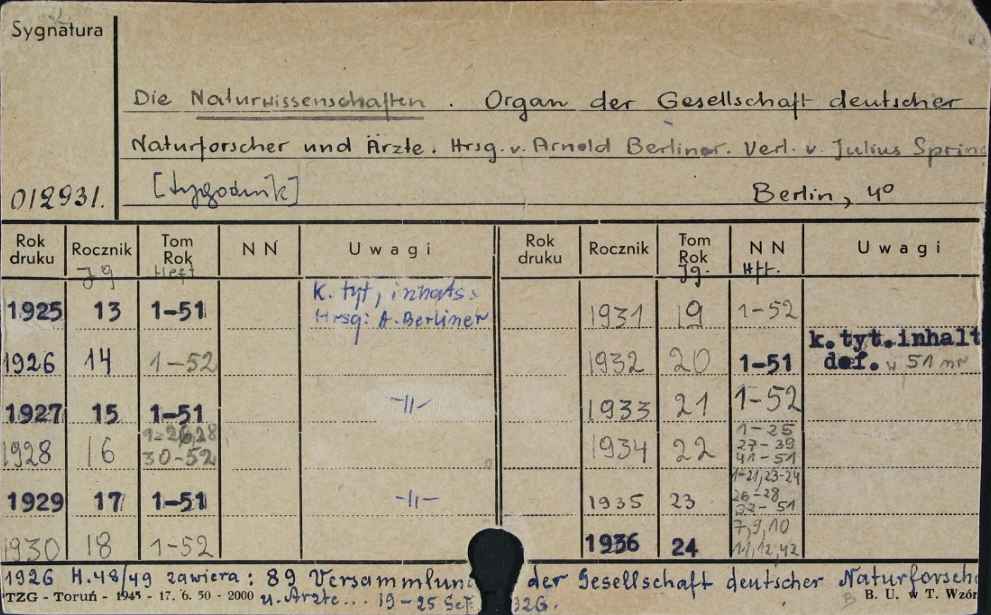 Sygnatura
Die Naturwissenschaften. Organ der Gesellschaft deutscher
Naturforscher und Ärzte. Hrsg. v. Arnold Berliner. Verl. v. Julius Spring
012931. [tygodnik] Berlin, 4°
Rok druku Rocznik Tom Rok NN Uwagi Rok druku Rocznik Tom Rok NN Uwagi
Jg Heft Jg. Hft.
1925 13 1-51 K. tyt, inhats: 1931 19 1-52
Hrsg: A. Berliner
1926 14 1-52 1932 20 1-51 k.tyt.inhalt
def. w 51 nr
1927 15 1-51 -||- 1933 21 1-52
1928 16 1-26,28 30-52 1934 22 1-25 27-39 41-51
1929 17 1-51 -||- 1935 23 1-21,23-24 26-28 51
1930 18 1-52 1936 24 7,9,10 11,12,42
1926 H.48/49 zawiera: 89 Versammlun der Gesellschaft deutscher Naturforsche
TZG - Toruń - 1945 - 17. 6. 50 - 2000 u. Ärzte... 19-25 Sept 926. B. U. w T. Wzór